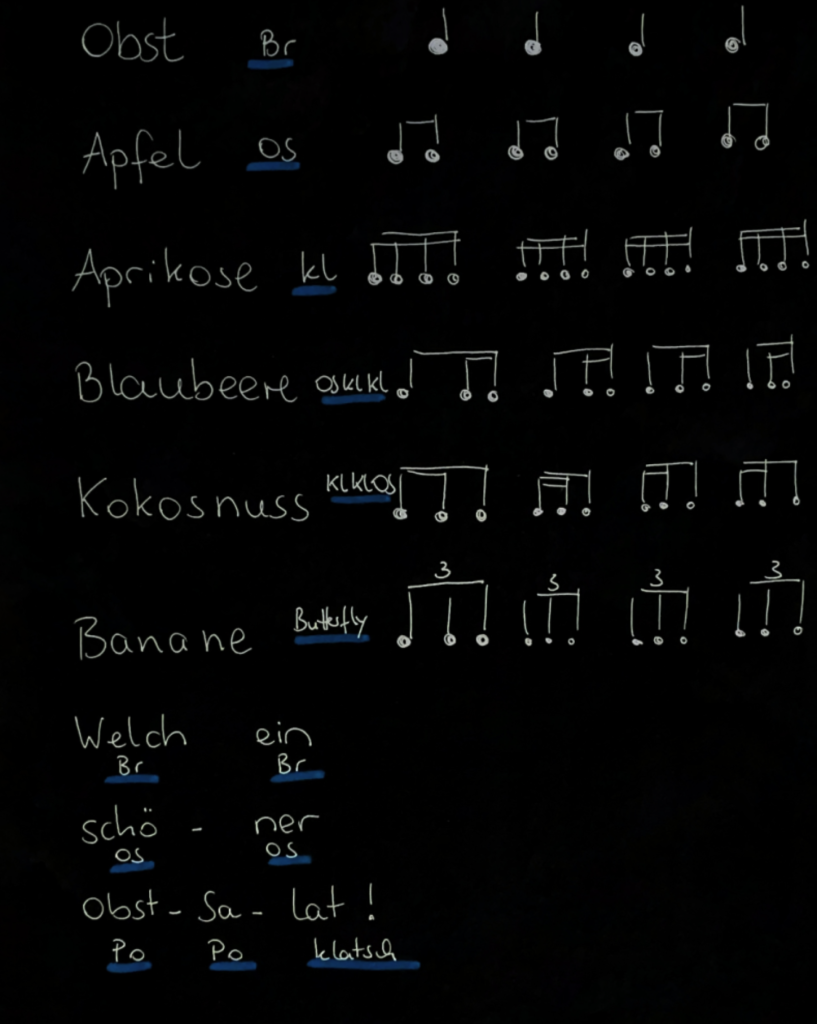 Obst Br
Apfel OS
Aprikose kl
Blaubeere OSklkl
Kokosnuss KlKlOS
3 3 3 3
Banane Butterfly
Welch ein
Br Br
schö - ner
OS OS
Obst - Sa - lat !
Po Po klatsch